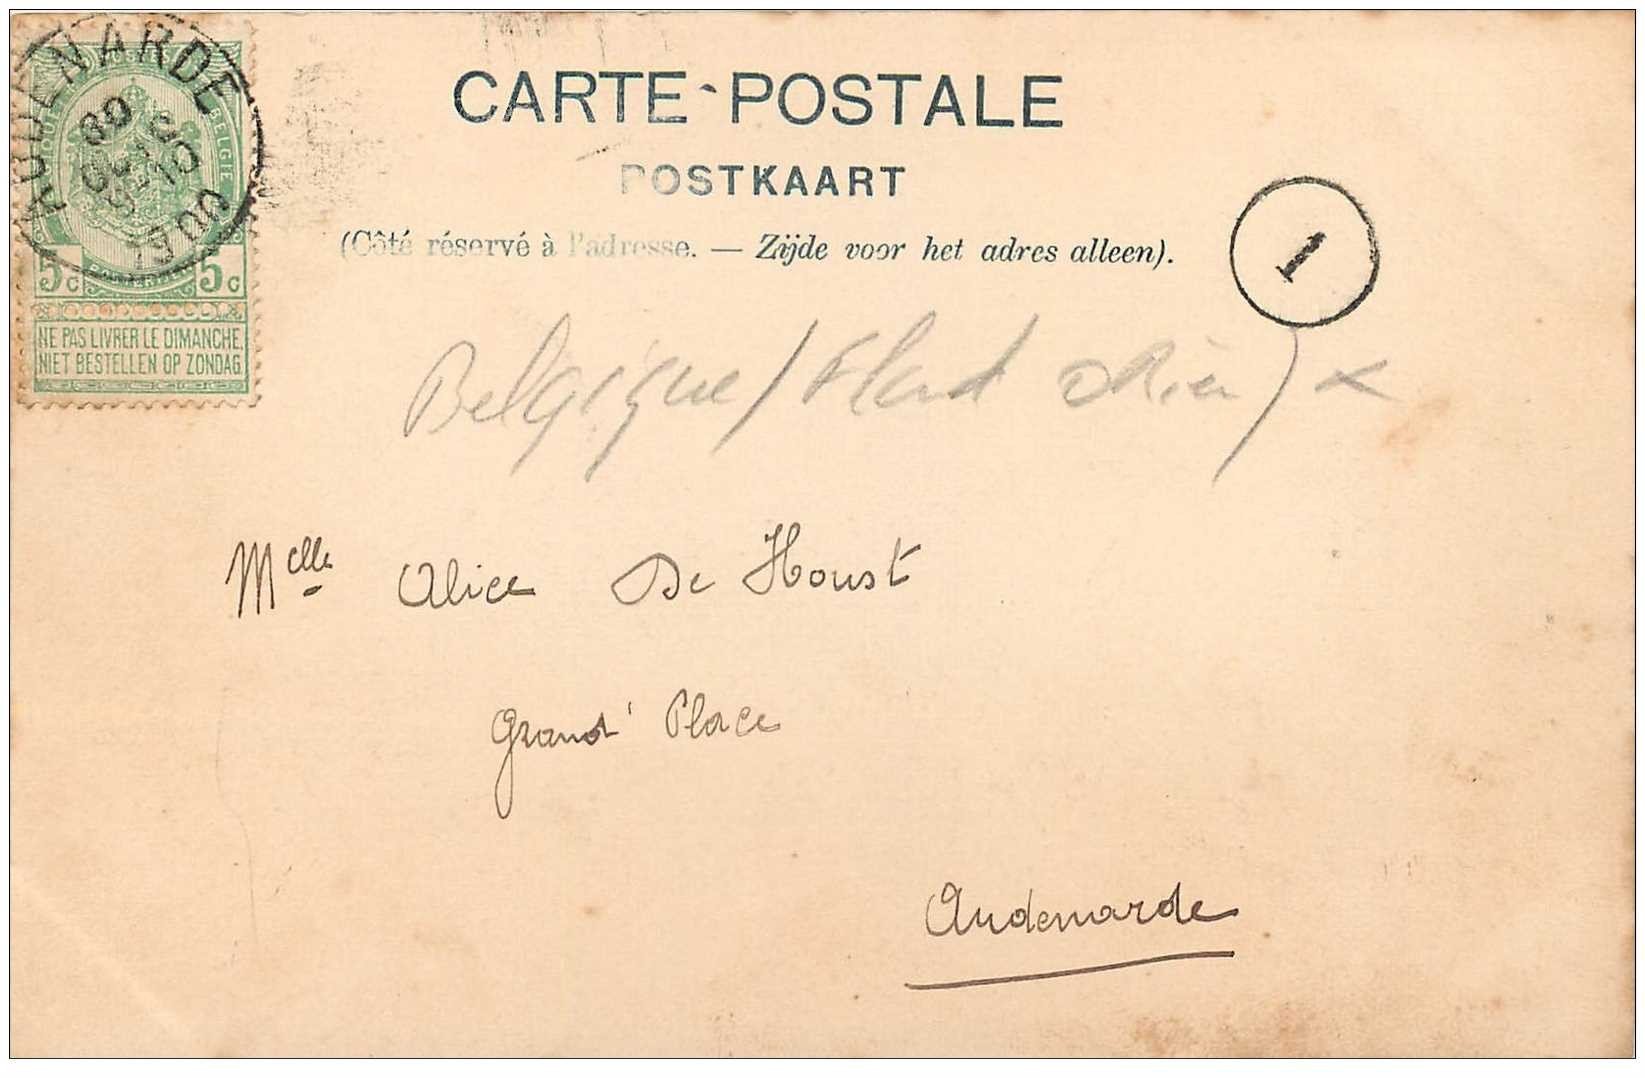 AUDENARDE
BELGIE
5c 5c
NE PAS LIVRER LE DIMANCHE
NIET BESTELLEN OP ZONDAG
CARTE-POSTALE
POSTKAART
(Côté réservé à l'adresse. — Zijde voor het adres alleen).
1
Belgique / Fland
Melle Alice De Houst
Grand' Place
Audenarde